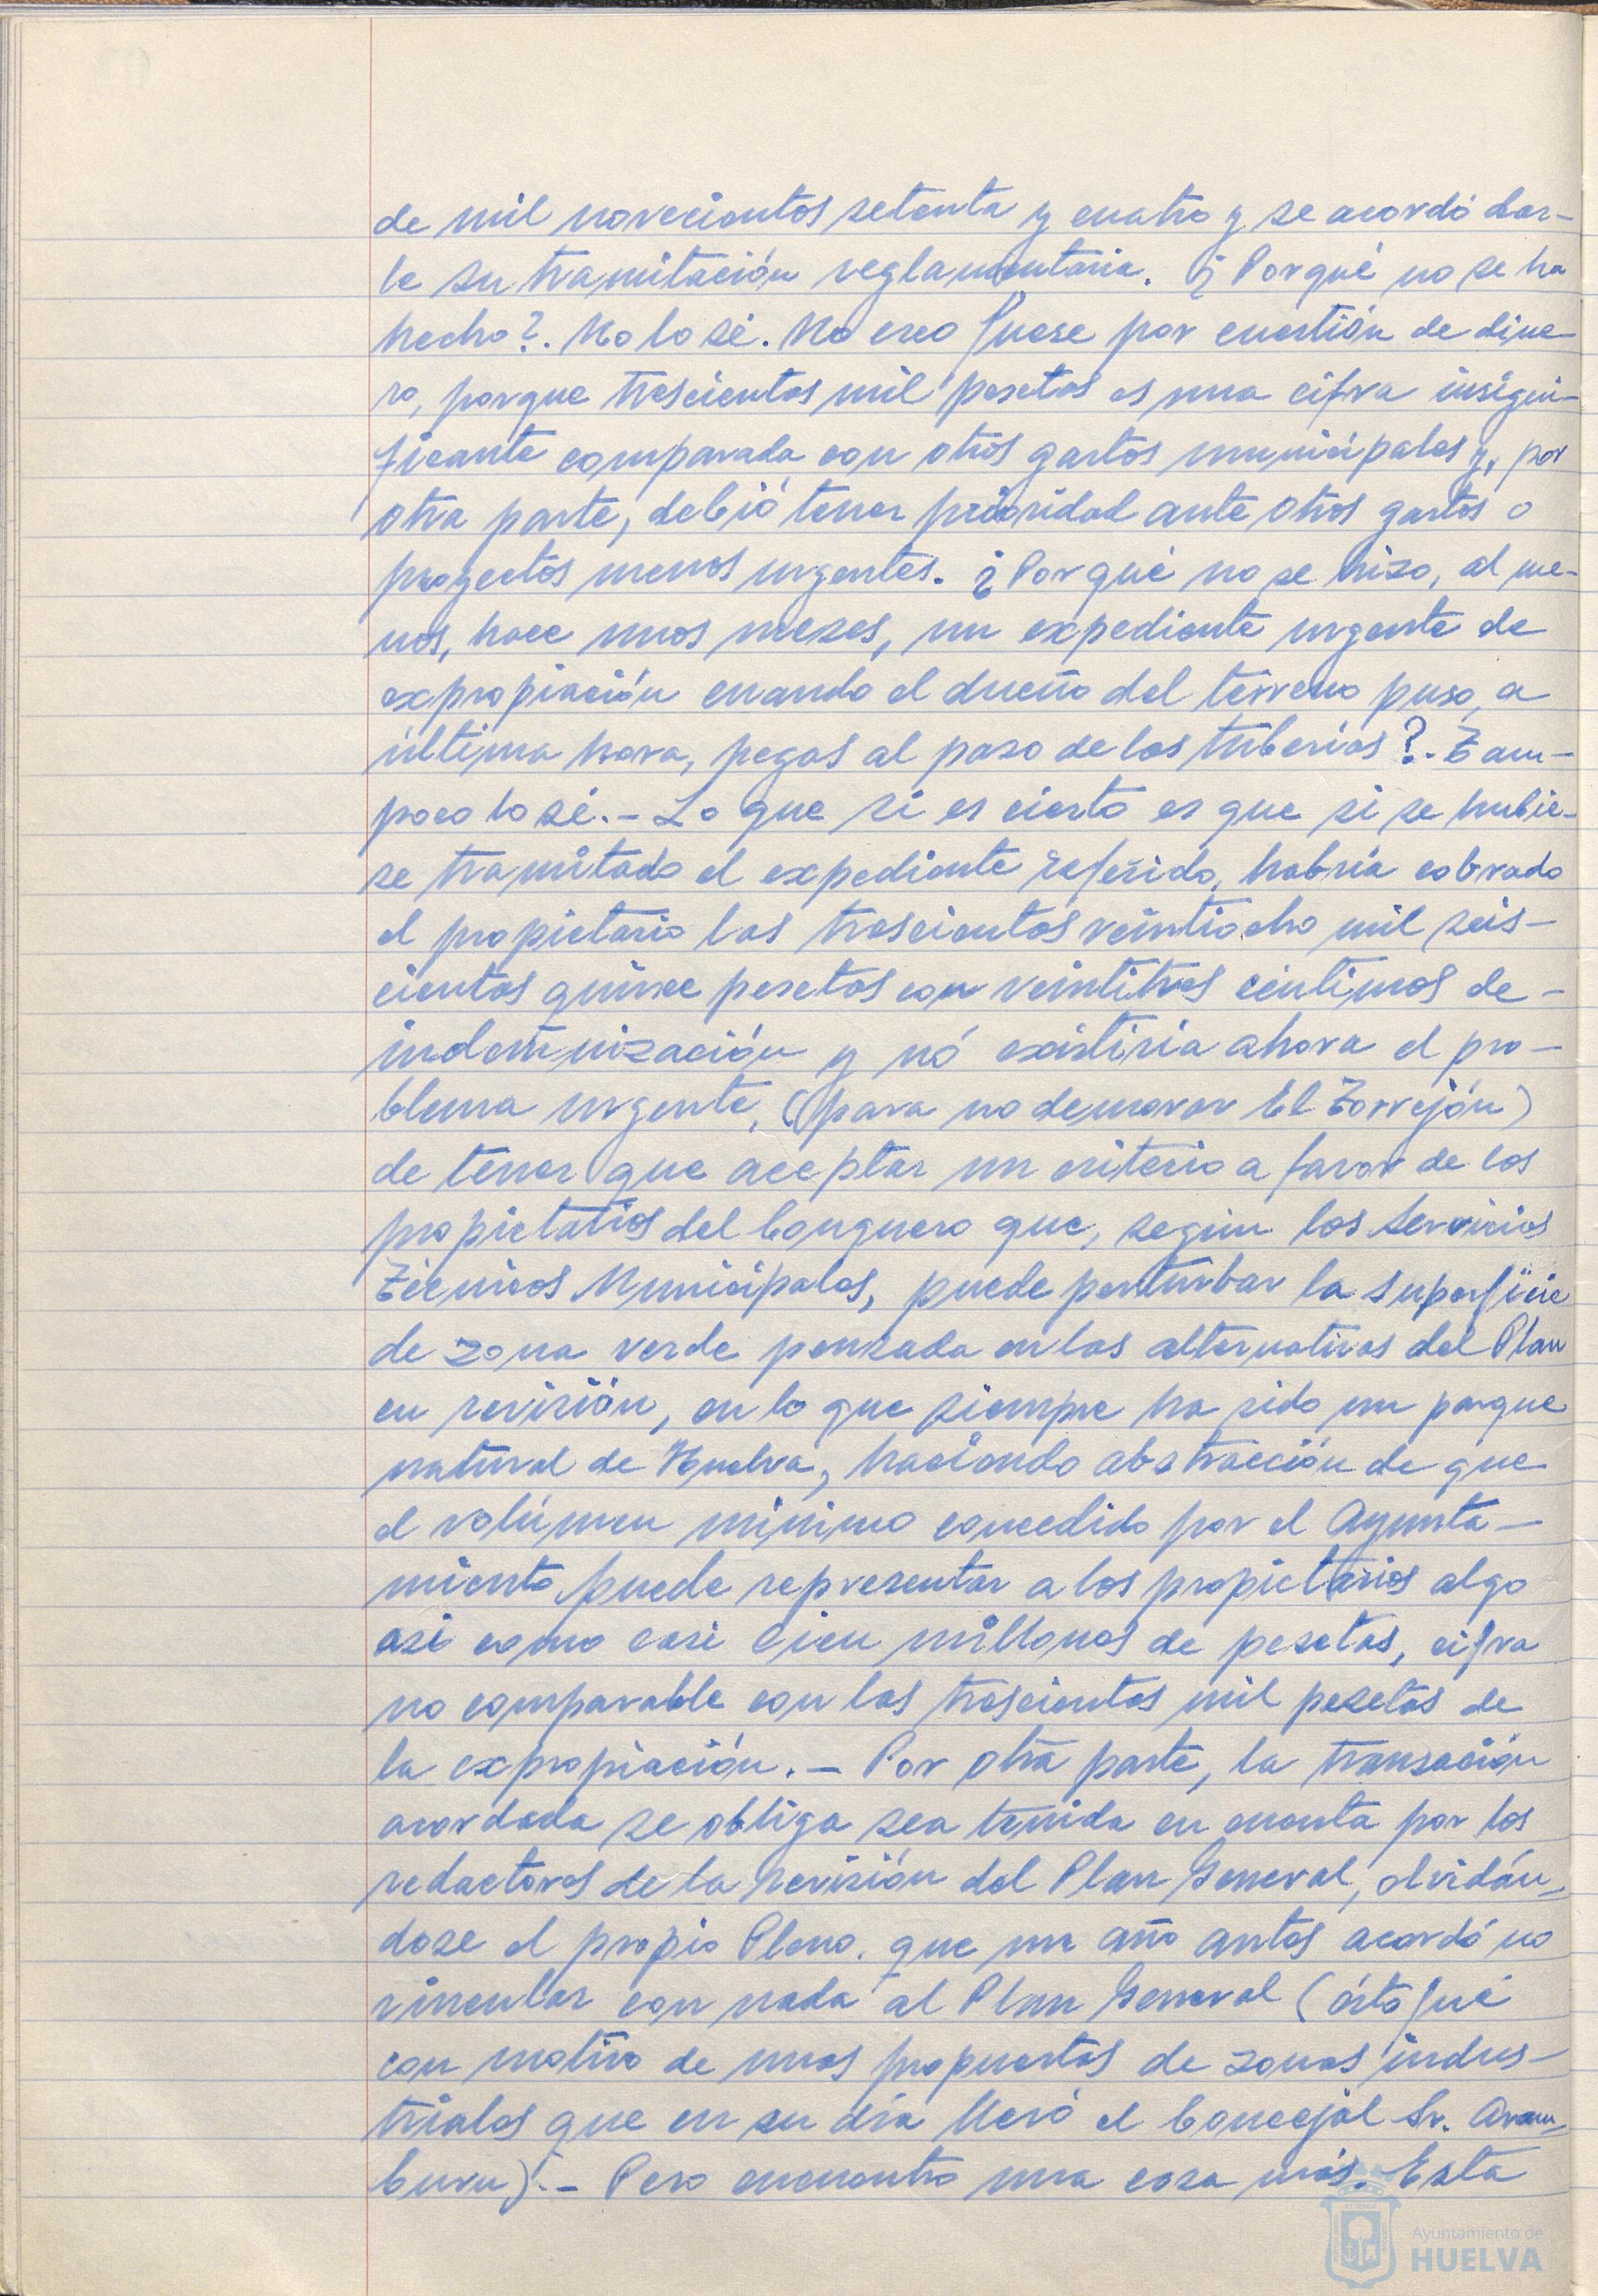 de mil novecientos setenta y cuatro y se acordó dar-
le su tramitación reglamentaria. ¿Porqué no se ha
hecho?. No lo sé. No creo fuese por cuestión de dine-
ro, porque trescientas mil pesetas es una cifra insigni-
ficante comparada con otros gastos municipales y, por
otra parte, debió tener prioridad ante otros gastos o
proyectos menos urgentes. ¿Porqué no se hizo, al me-
nos, hace unos meses, un expediente urgente de
expropiación cuando el dueño del terreno puso, a
última hora, pegas al paso de las tuberías?. Tam-
poco lo sé.- Lo que si es cierto es que si se hubie-
se tramitado el expediente referido, habría cobrado
el propietario las trescientas veintiocho mil seis-
cientas quince pesetas con veintitres céntimos de-
indemnización y nó existiría ahora el pro-
blema urgente, (para no demorar El Torrejón)
de tener que aceptar un criterio a favor de los
propietarios del Conquero que, según los Servicios
Técnicos Municipales, puede perturbar la superficie
de zona verde pensada en las alternativas del Plan
en revisión, en lo que siempre ha sido un parque
natural de Huelva, haciendo abstracción de que
el volúmen mínimo concedido por el Ayunta-
miento puede representar a los propietarios algo
asi como casi cien millones de pesetas, cifra
no comparable con las trescientas mil pesetas de
la expropiación.- Por otra parte, la transación
acordada se obliga sea tenida en cuenta por los
redactores de la revisión del Plan General, olvidán-
dose el propio Pleno. que un año antes acordó no
vincular con nada al Plan General (ésto fué
con motivo de unas propuestas de zonas indus-
triales que en su día llevó el Concejal Sr. Aram-
buru).- Pero encuentro una cosa más. Esta
Ayuntamiento de
HUELVA